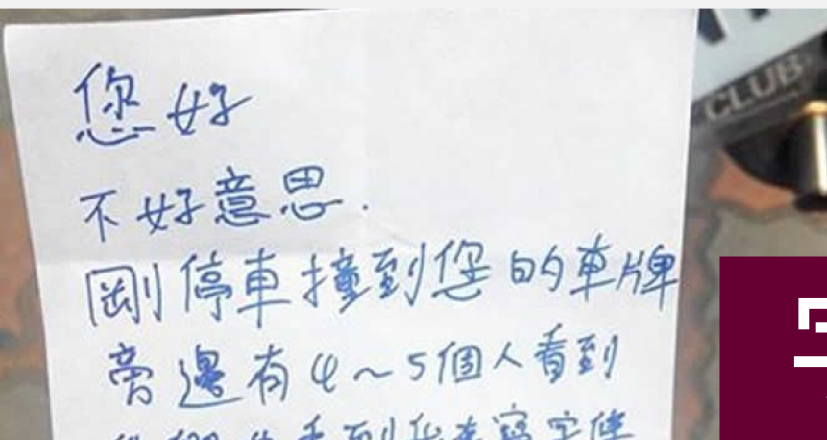 您好
不好意思.
剛停車撞到您的車牌
旁邊有4~5個人看到
看到我在寫字條
CLUB